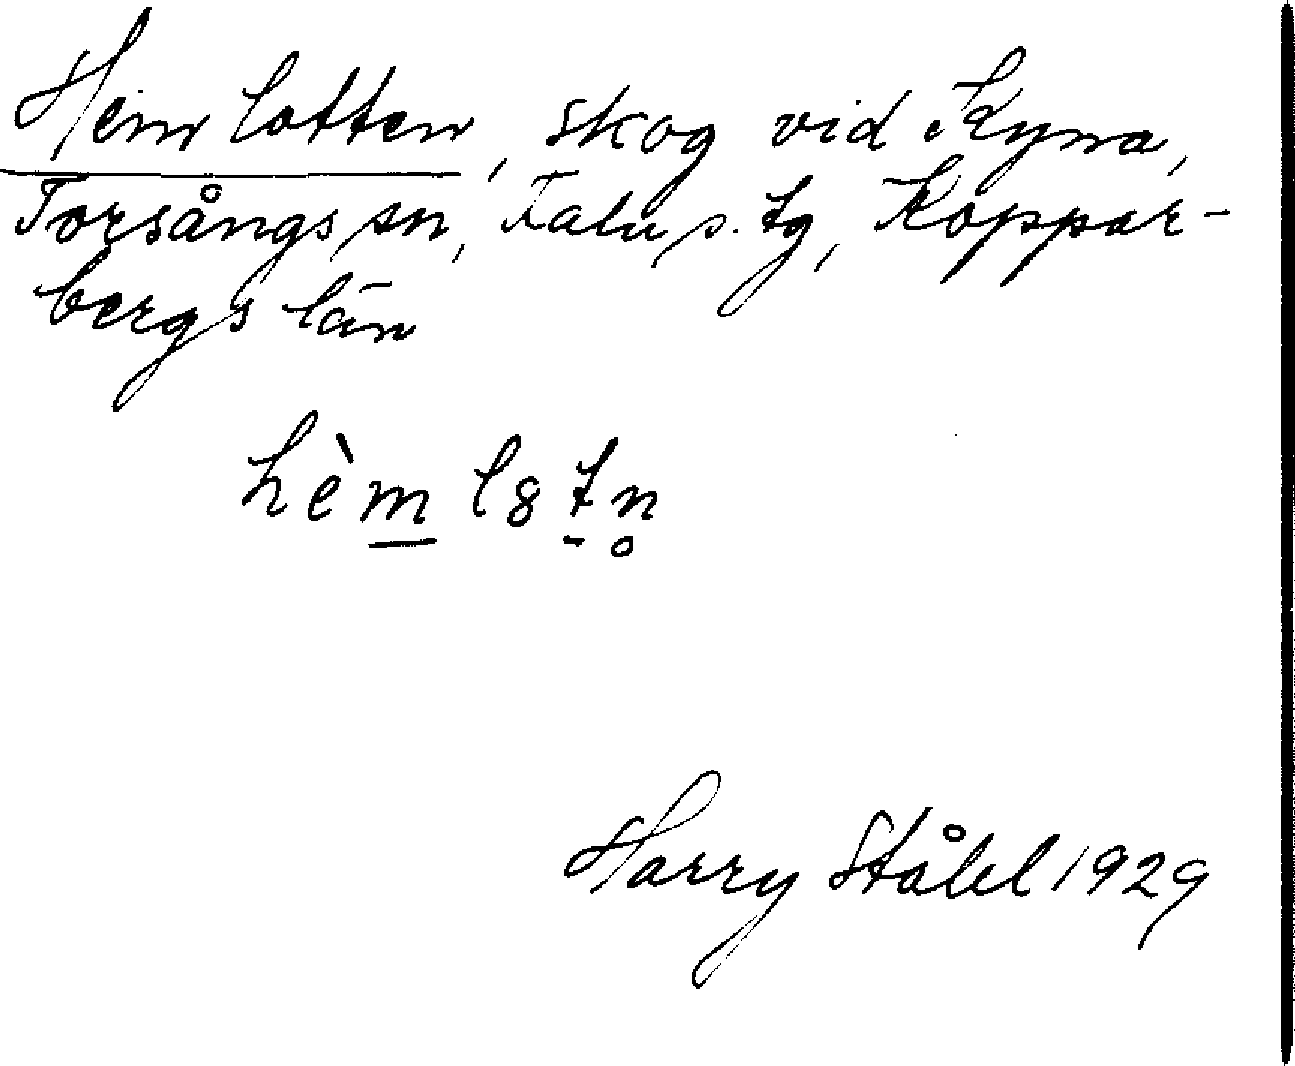 Hemlotten, skog vid Kyna,
Torsångs sn, Falu s. tg, Koppar-
bergs län
hèm l8tn̥
Harry Ståhl 1929